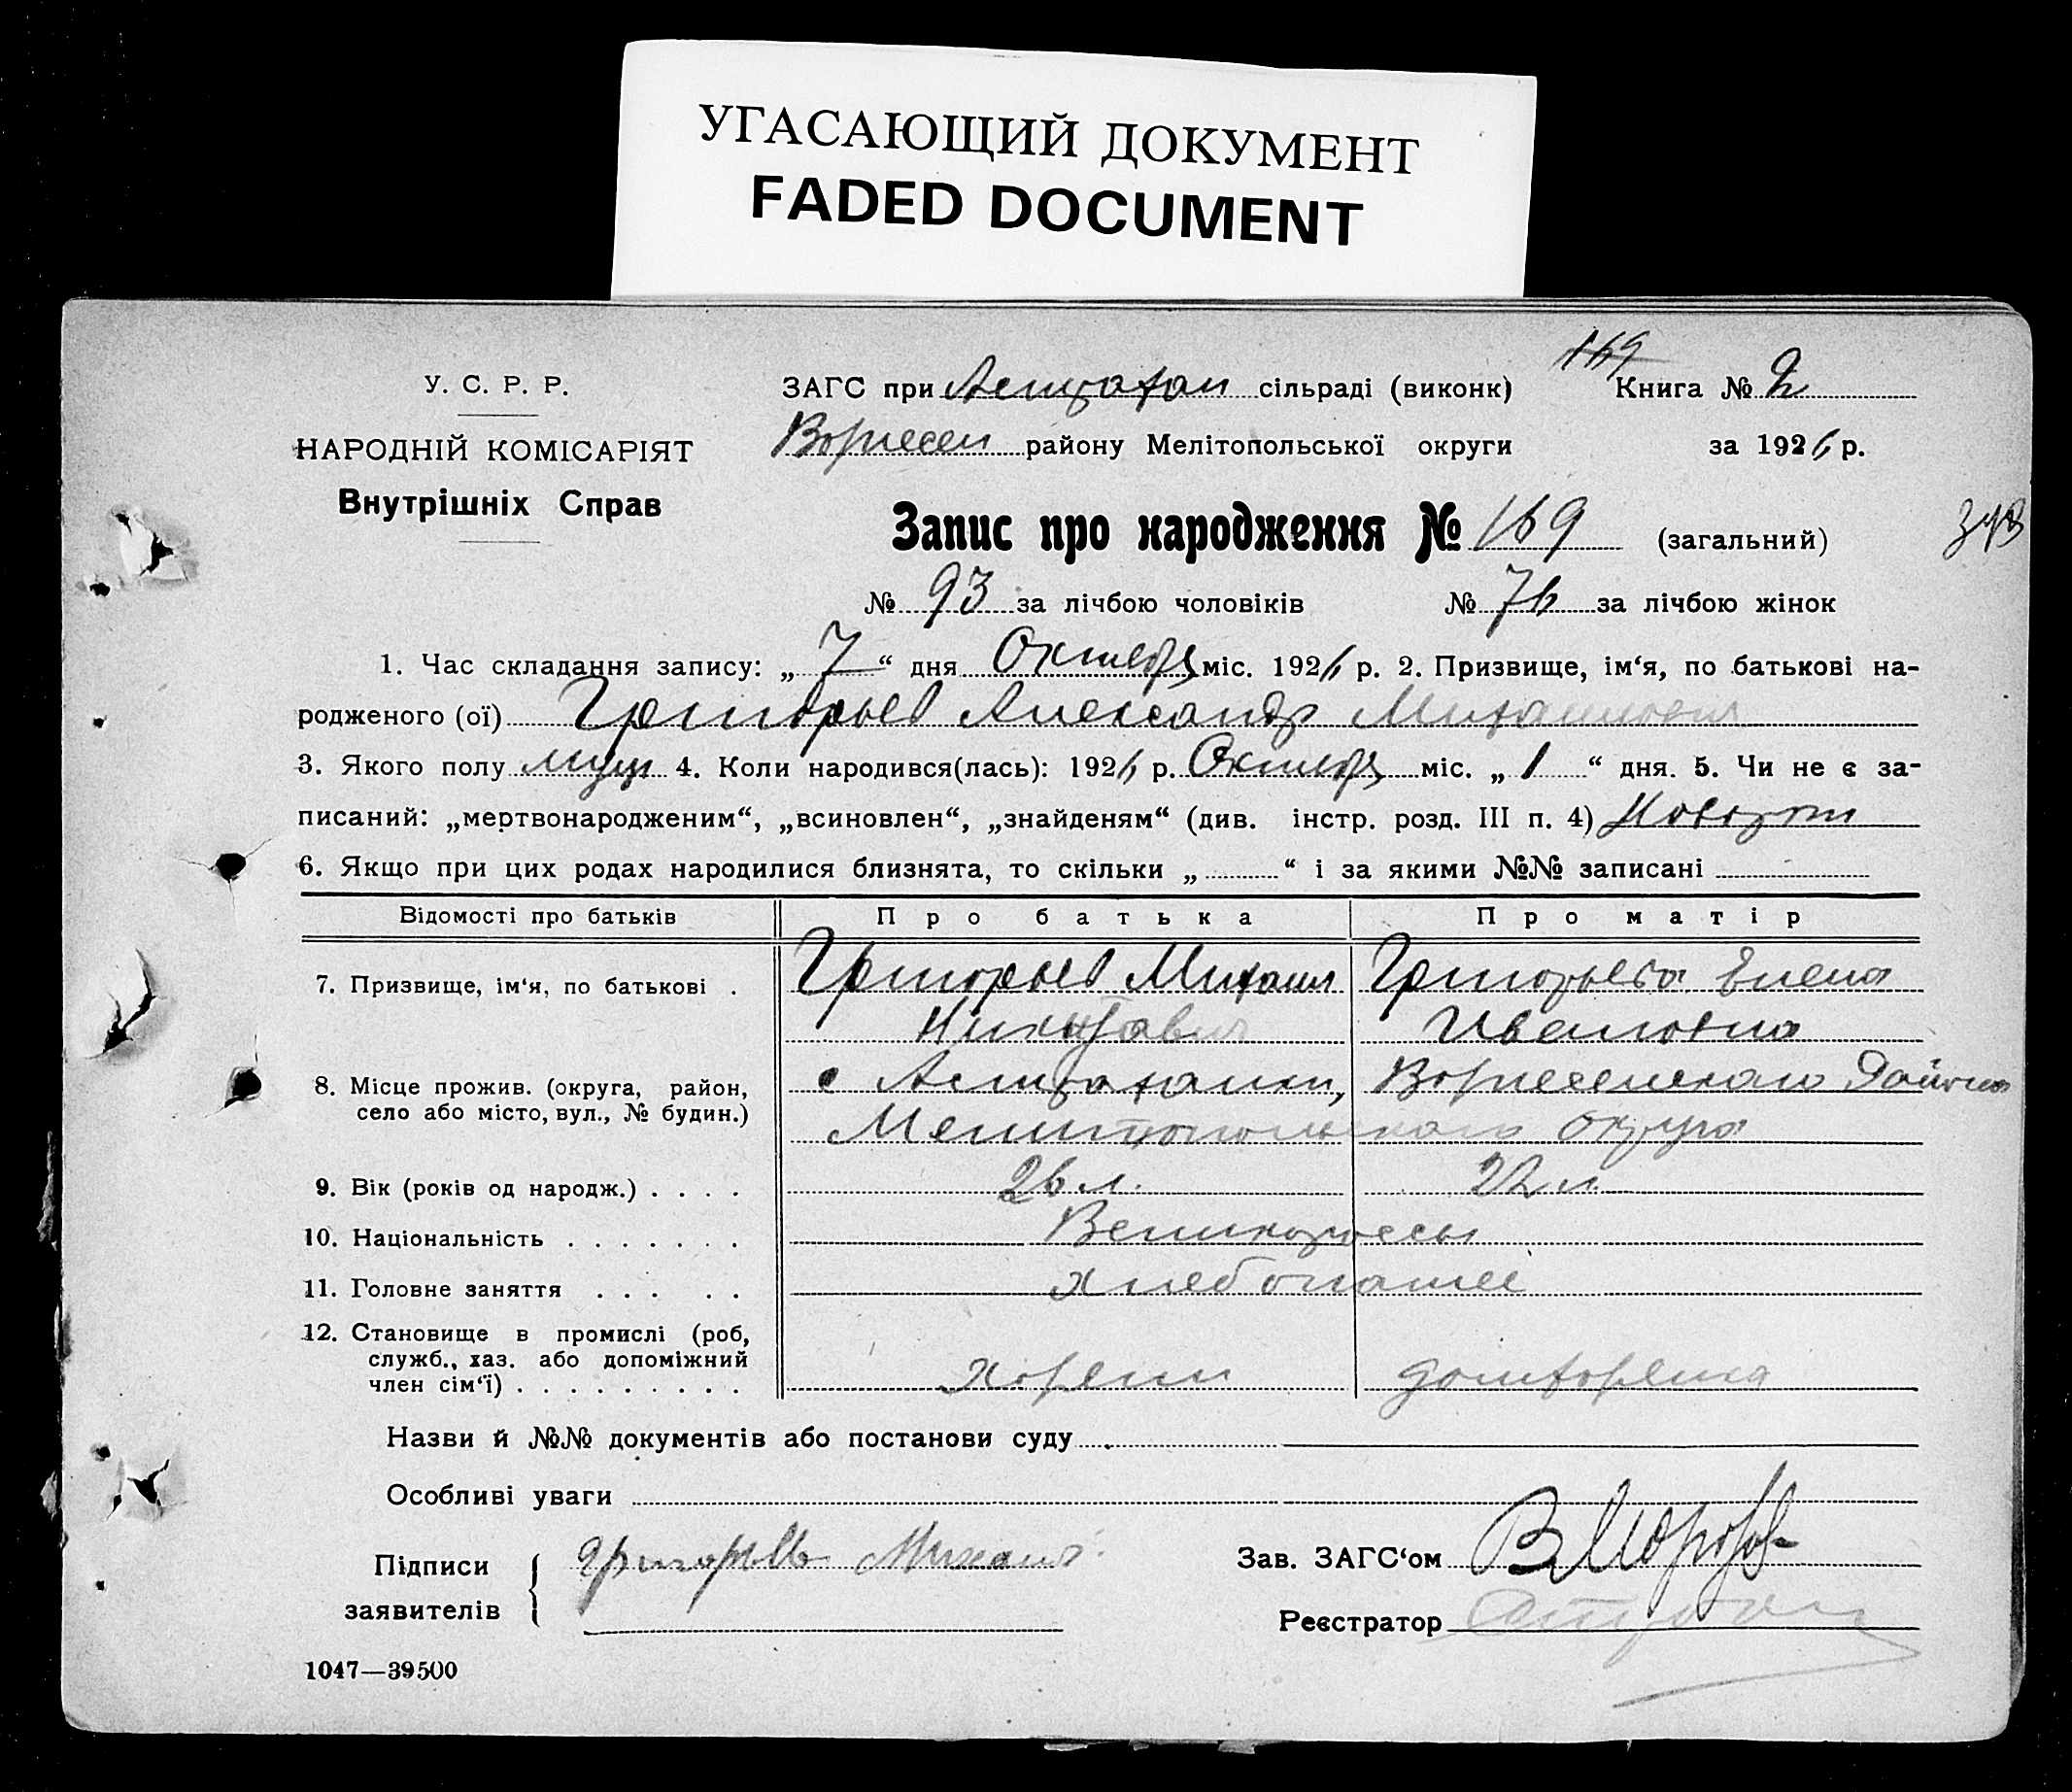 УГАСАЮЩИЙ ДОКУМЕНТ
FADED DOCUMENT
169
У. С. Р. Р.
ЗАГС при Астрахан сільраді (виконк)
Книга № 2
НАРОДНІЙ КОМІСАРІЯТ
Вознесен району Мелітопольської округи
за 1926 р.
Внутрішніх Справ
Запис про народження № 169 (загальний)
№ 93 за лічбою чоловіків № 76 за лічбою жінок
1. Час складання запису: „ 7 “ дня Октября міс. 1926 р. 2. Призвище, ім‘я, по батькові на-
родженого (ої) Григорьев Александр Михайлович
3. Якого полу муж 4. Коли народився(лась): 1926 р. Октября міс. „ 1 “ дня. 5. Чи не є за-
писаний: „мертвонародженим“, „всиновлен“, „знайденям“ (див. інстр. розд. III п. 4)
6. Якщо при цих родах народилися близнята, то скільки „ “ і за якими №№ записані
Відомості про батьків Про батька Про матір
7. Призвище, ім‘я, по батькові . Григорьев Михаил Григорьева Елена
Ивановна
8. Місце прожив. (округа, район, с Астраханки, Вознесенскаго Района
село або місто, вул., № будин.)
Мелитопольскаго округа
9. Вік (років од народж.) . . . . 26 л. 22 л.
10. Національність . . . . . . . Великороссы
11. Головне заняття . . . . . хлебопашес
12. Становище в промислі (роб,
служб., хаз. або допоміжний
член сім‘ї) . . . . . . . . . хозяин домхозяика
Назви й №№ документів або постанови суду
Особливі уваги
Підписи
заявителів
Григорьевъ Михаил
Зав. ЗАГС‘ом В Морозов
Реєстратор
1047—39500